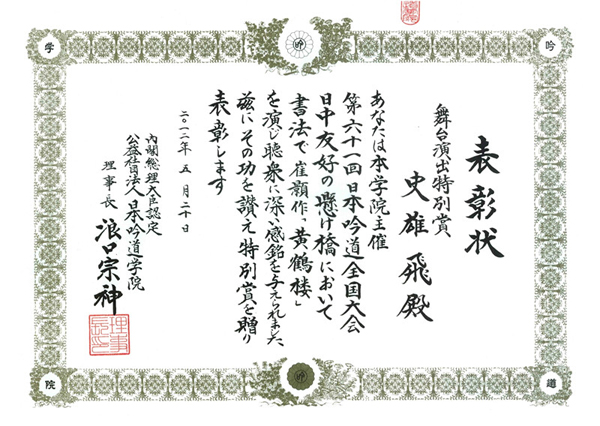 表彰状
舞台演出特別賞
史雄飛殿
あなたは本学院主催
第六十一回日本吟道全国大会
日中友好の懸け橋において
書法で崔顥作「黄鶴楼」
を演じ聴衆に深い感銘を与えられました
茲にその功を讃え特別賞を贈り
表彰します
二〇一二年五月二十日
内閣総理大臣認定
公益社団法人日本吟道学院
理事長 浪口宗神
吟
道
学
院
理事長之印